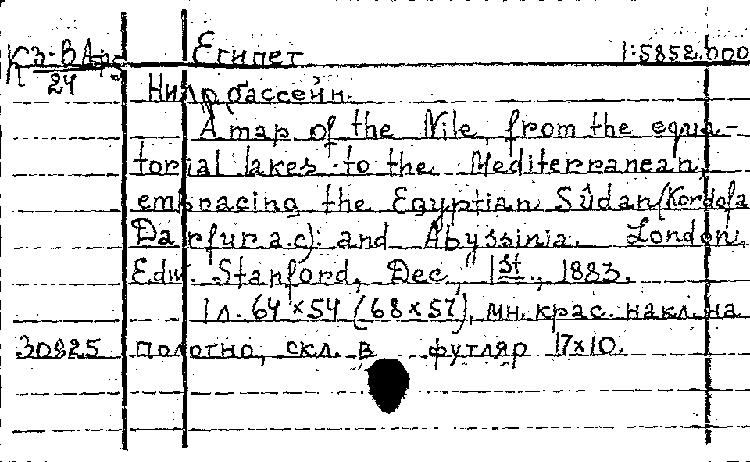 К3-В Арз Египет 1:5852.000
24
Нил р. бассейн.
A map of the Nile, from the equa-
torial lakes to the Mediterranean,
embracing the Egyptian Sûdan (Kordofa
Darfur a.c): and Abyssinia. London,
Edw. Stanford, Dec, 1st., 1883.
1 л. 64×54 (68×57), мн. крас. накл. на
30825 полотно, скл. в футляр 17×10.